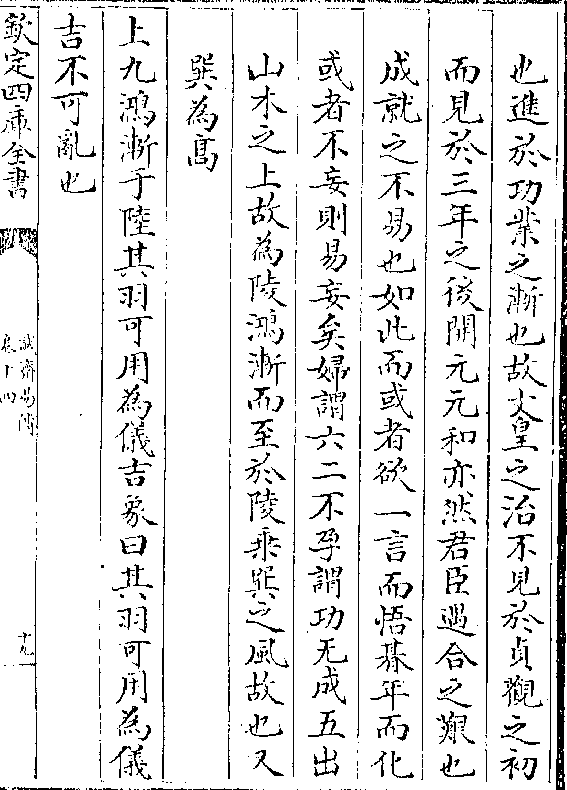 也進於功業之漸也故文皇之治不見於貞觀之初
而見於三年之後開元元和亦然君臣遇合之艱也
成就之不易也如此而或者欲一言而悟朞年而化
或者不妄則易妄矣婦謂六二不孕謂功无成五出
山木之上故為陵鴻漸而至於陵乗巽之風故也又
巽為髙
上九鴻漸于陸其羽可用為儀吉象曰其羽可用為儀
吉不可亂也
欽定四庫全書
誠齋易傳
卷十四
十九